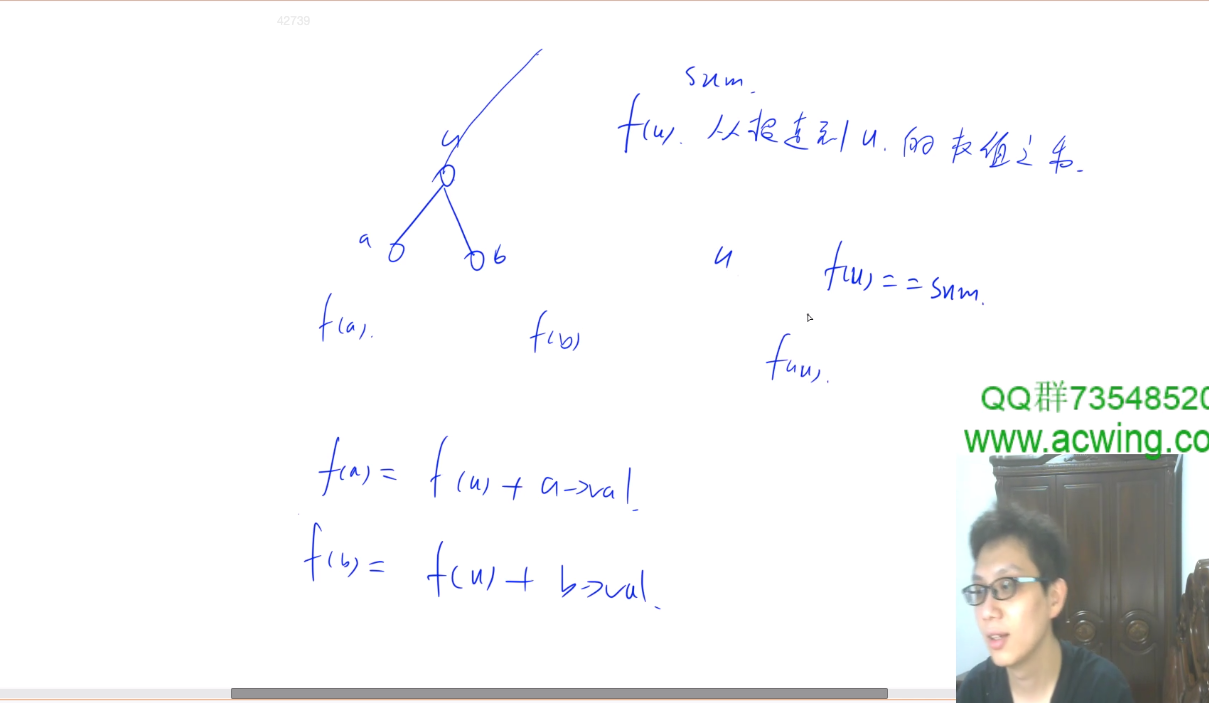 42739
sum.
f(u). 从根走到u.的权值之和.
u
a
b
u
f(u)==sum.
f(a).
f(b)
f(u).
QQ群73548520
www.acwing.co
f(a)= f(u)+a->val.
f(b)= f(u)+b->val.